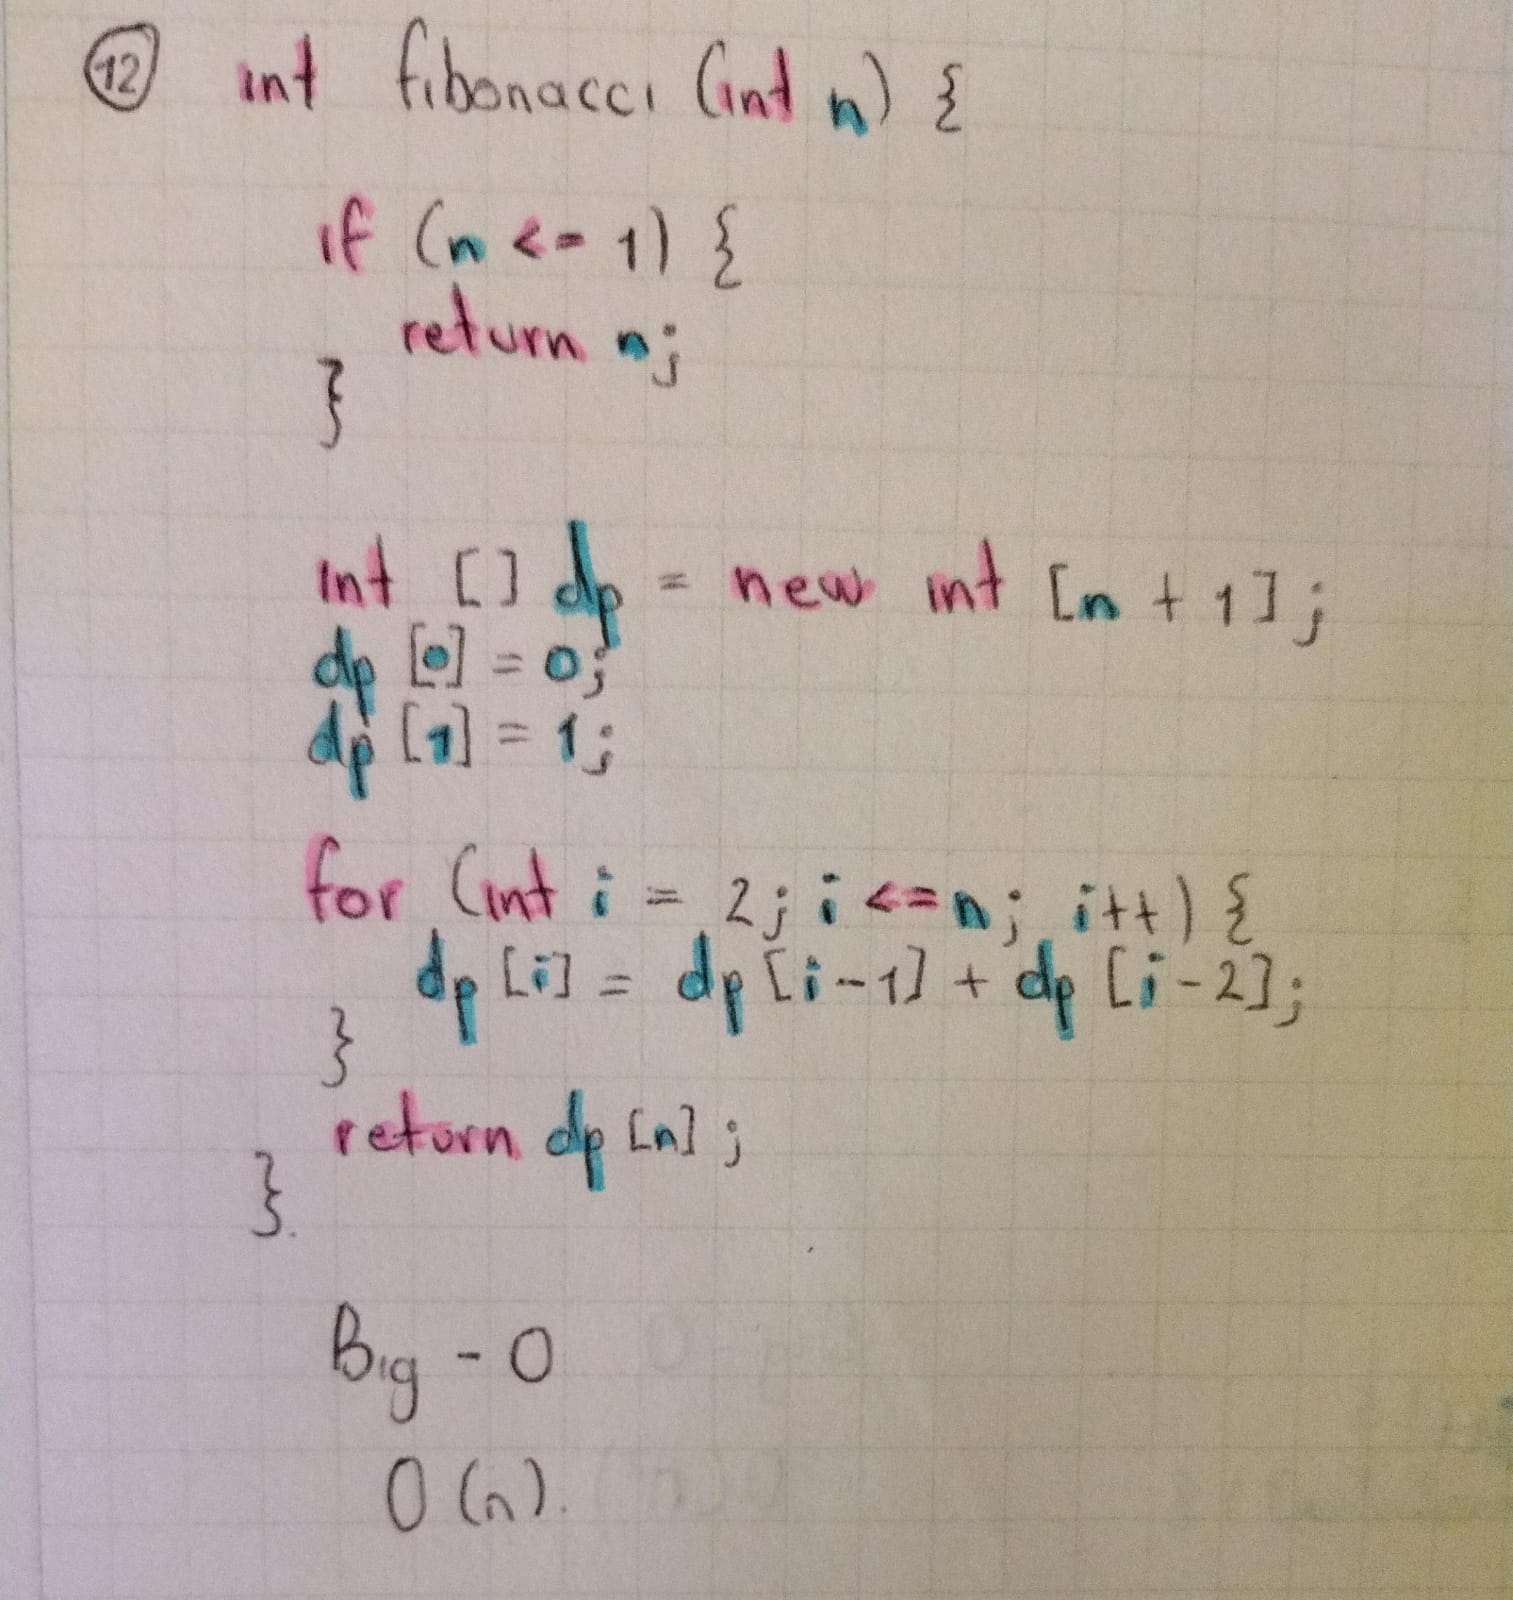 12 int fibonacci (int n) {
if (n <= 1) {
return n;
}
int [] dp = new int [n + 1];
dp [0] = 0;
dp [1] = 1;
for (int i = 2; i <= n; i++) {
dp [i] = dp [i-1] + dp [i-2];
}
return dp [n];
}.
Big - O
O (n).